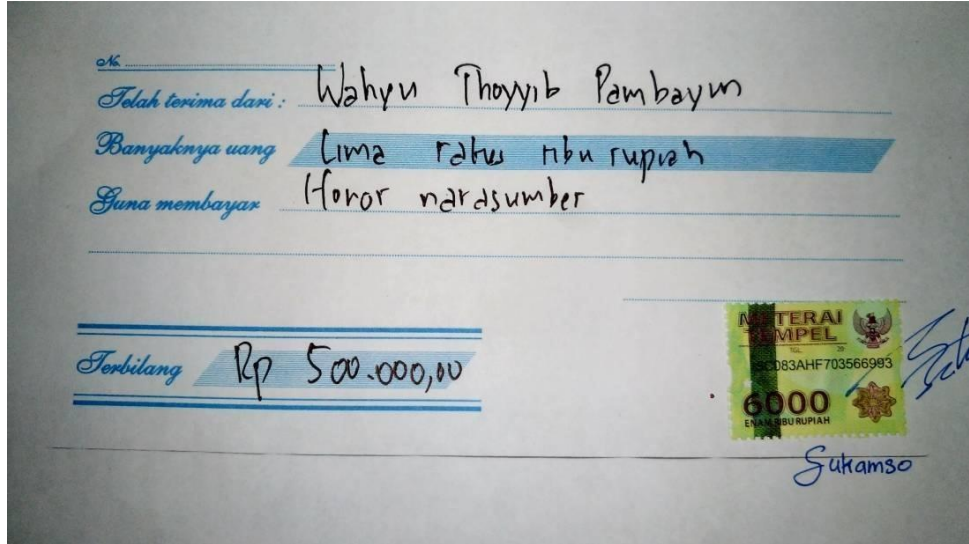 No.
Telah terima dari : Wahyu Thoyyib Pambayun
Banyaknya uang Lima ratus ribu rupiah
Guna membayar Honor narasumber
Terbilang Rp 500.000,00
METERAI
TEMPEL
TGL. 20
5C083AHF703566993
6000
ENAM RIBU RUPIAH
Sukamso